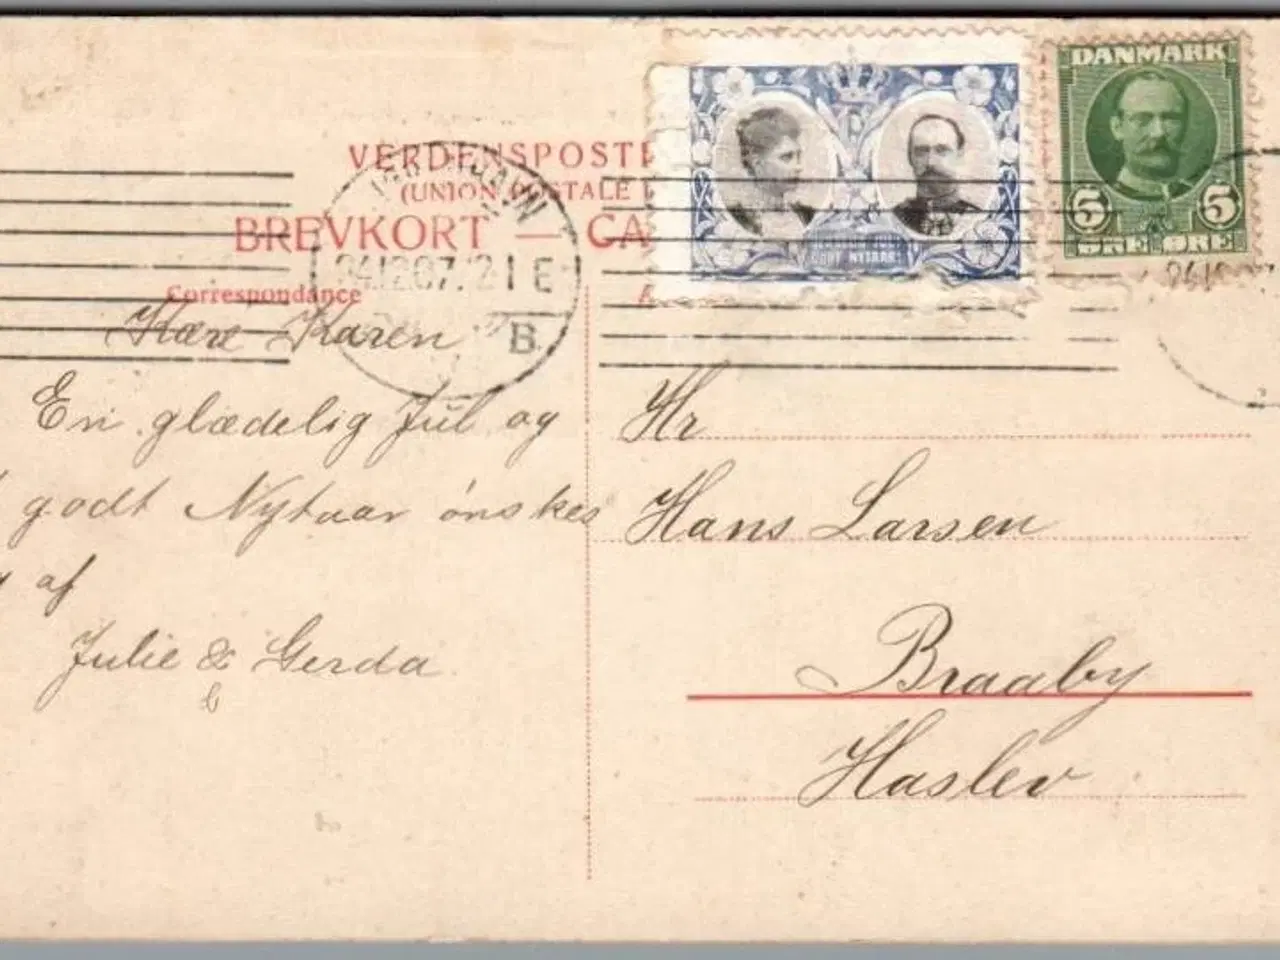 DANMARK
5 5
ØRE ØRE
GODT NYTAAR!
VERDENSPOSTF
(UNION POSTALE
BREVKORT — CA
KJØBENHAVN
24.12.07. 2-1 E
B.
Correspondance
Kære Karen
En glædelig Jul og
godt Nytaar ønskes
af
Julie & Gerda
Hr
Hans Larsen
Braaby
Haslev